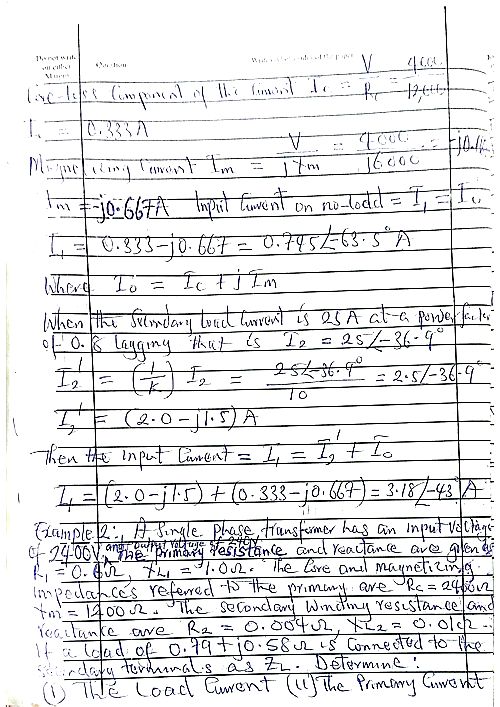 Do not write
on either
Margin
Question
V 4000
Core-loss Component of the Current Ic = — = —
Rc 12,000
Ic = 0.333A
V 4000
Magnetizing Current Im = — = — = -j0.
jXm j6000
Im = -j0.667A Input Current on no-load = I1 = Io
I1 = 0.333-j0.667 = 0.745∠-63.5° A
Where Io = Ic + j Im
When the Secondary load Current is 25 A at a power factor
of 0.8 lagging that is I2 = 25∠-36.9°
I2' = (1/K) I2 = 25∠-36.9° / 10 = 2.5∠-36.9
I2' = (2.0-j1.5) A
Then the input Current = I1 = I2' + Io
I1 = (2.0-j1.5) + (0.333-j0.667) = 3.18∠-43° A
Example 2: A Single phase transformer has an input Voltage
of 2400V and output voltage of 240V. The primary resistance and reactance are given as
R1 = 0.6Ω, XL1 = 1.0Ω. The Core and magnetizing
Impedances referred to the primary are Rc = 2400Ω and
Xm = 1200Ω. The secondary winding resistance and
reactance are R2 = 0.004Ω, XL2 = 0.01Ω.
If a load of 0.79 + j0.58Ω is Connected to the
secondary terminals as ZL. Determine:
(i) The Load Current (ii) The Primary Current